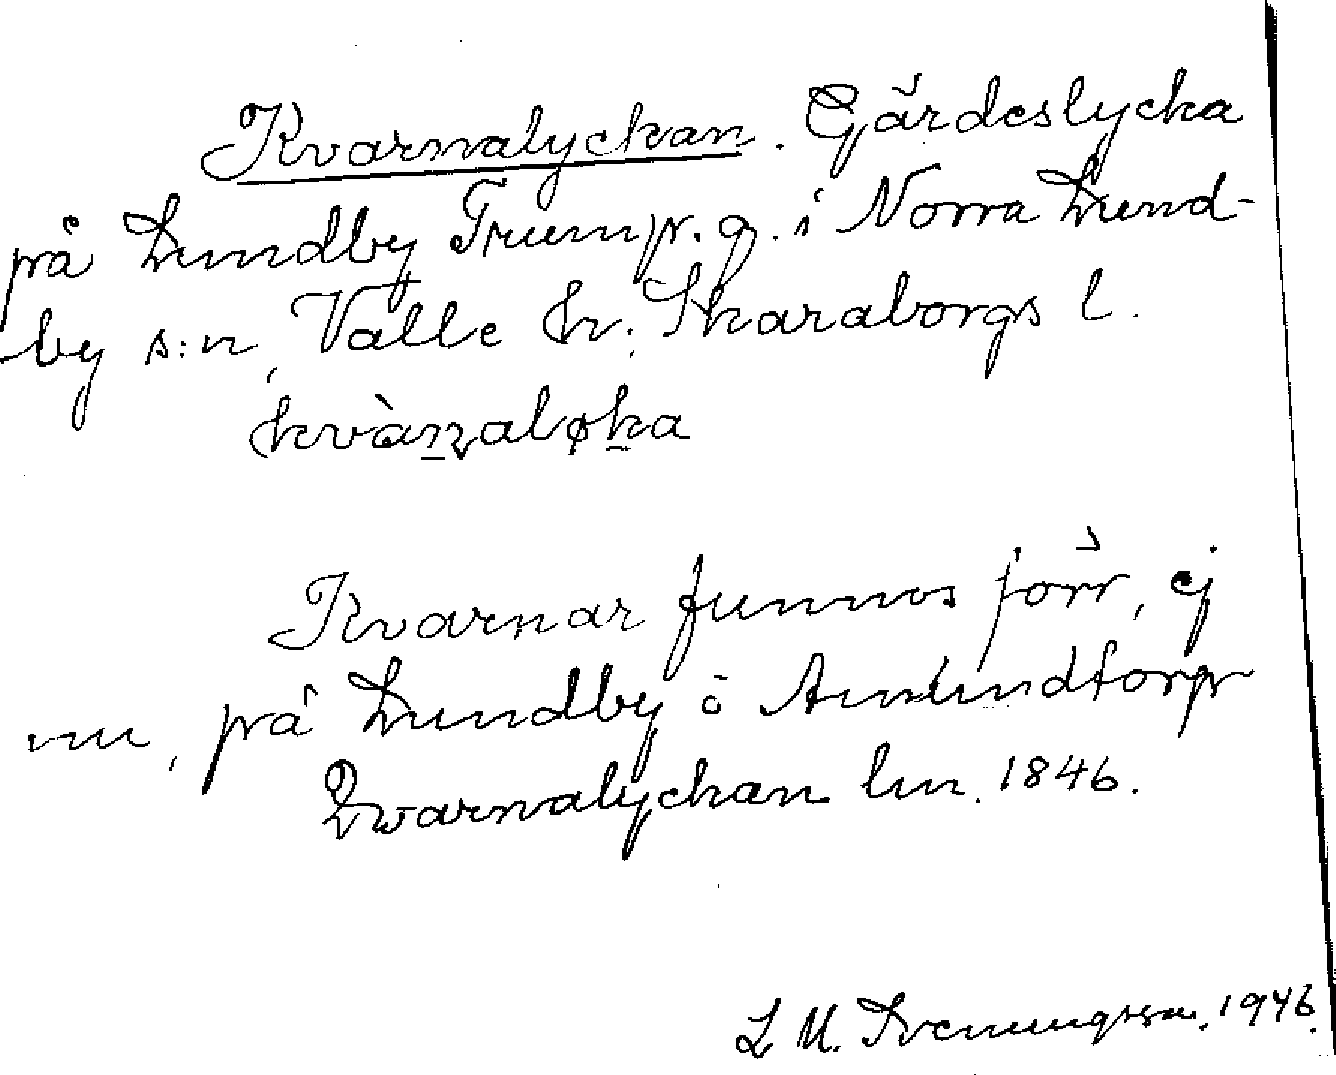 Kvarnalyckan. Gärdeslycka
på Lundby Trump. g. i Norra Lund-
by s:n, Valle hr. Skaraborgs l.
kvànnaløka
Kvarnar funnos förr, ej
nu, på Lundby o Amundtorp
Qwarnalyckan lm. 1846.
L M. Svenungsson. 1946.